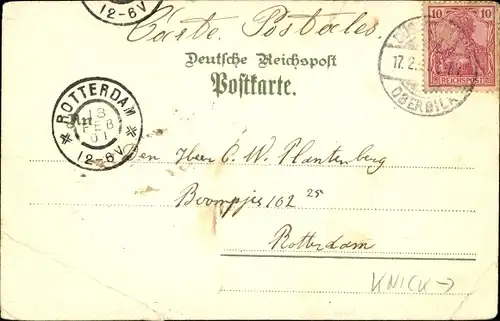 12-6V
Carte Postales.
10
REICHSPOST
17.2.
OBERBILK
Deutsche Reichspost
Postkarte.
ROTTERDAM
13
FEB
01
12-6V
An
Den Heer C. W. Plantenberg
Boompjes 102 25
Rotterdam
KNICK →